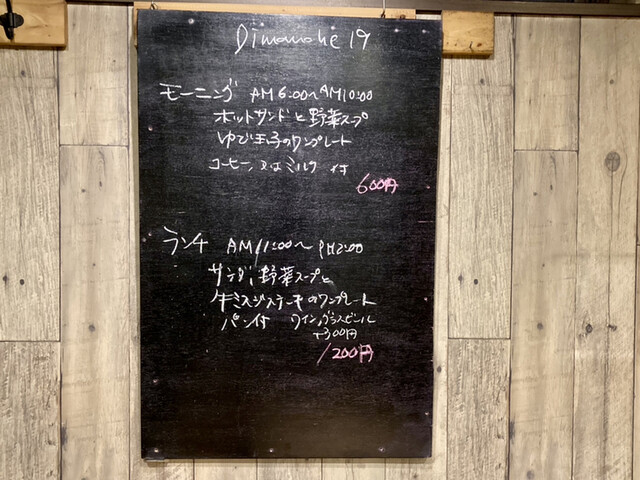 Dimanche 19
モーニング AM6:00〜AM10:00
ホットサンドと野菜スープ
ゆで玉子のワンプレート
コーヒー、又はミルク 付
600円
ランチ AM11:00〜PM2:00
サラダ、野菜スープと
牛ミスジステーキのワンプレート
パン付 ワイン、グラスビール
+300円
1200円